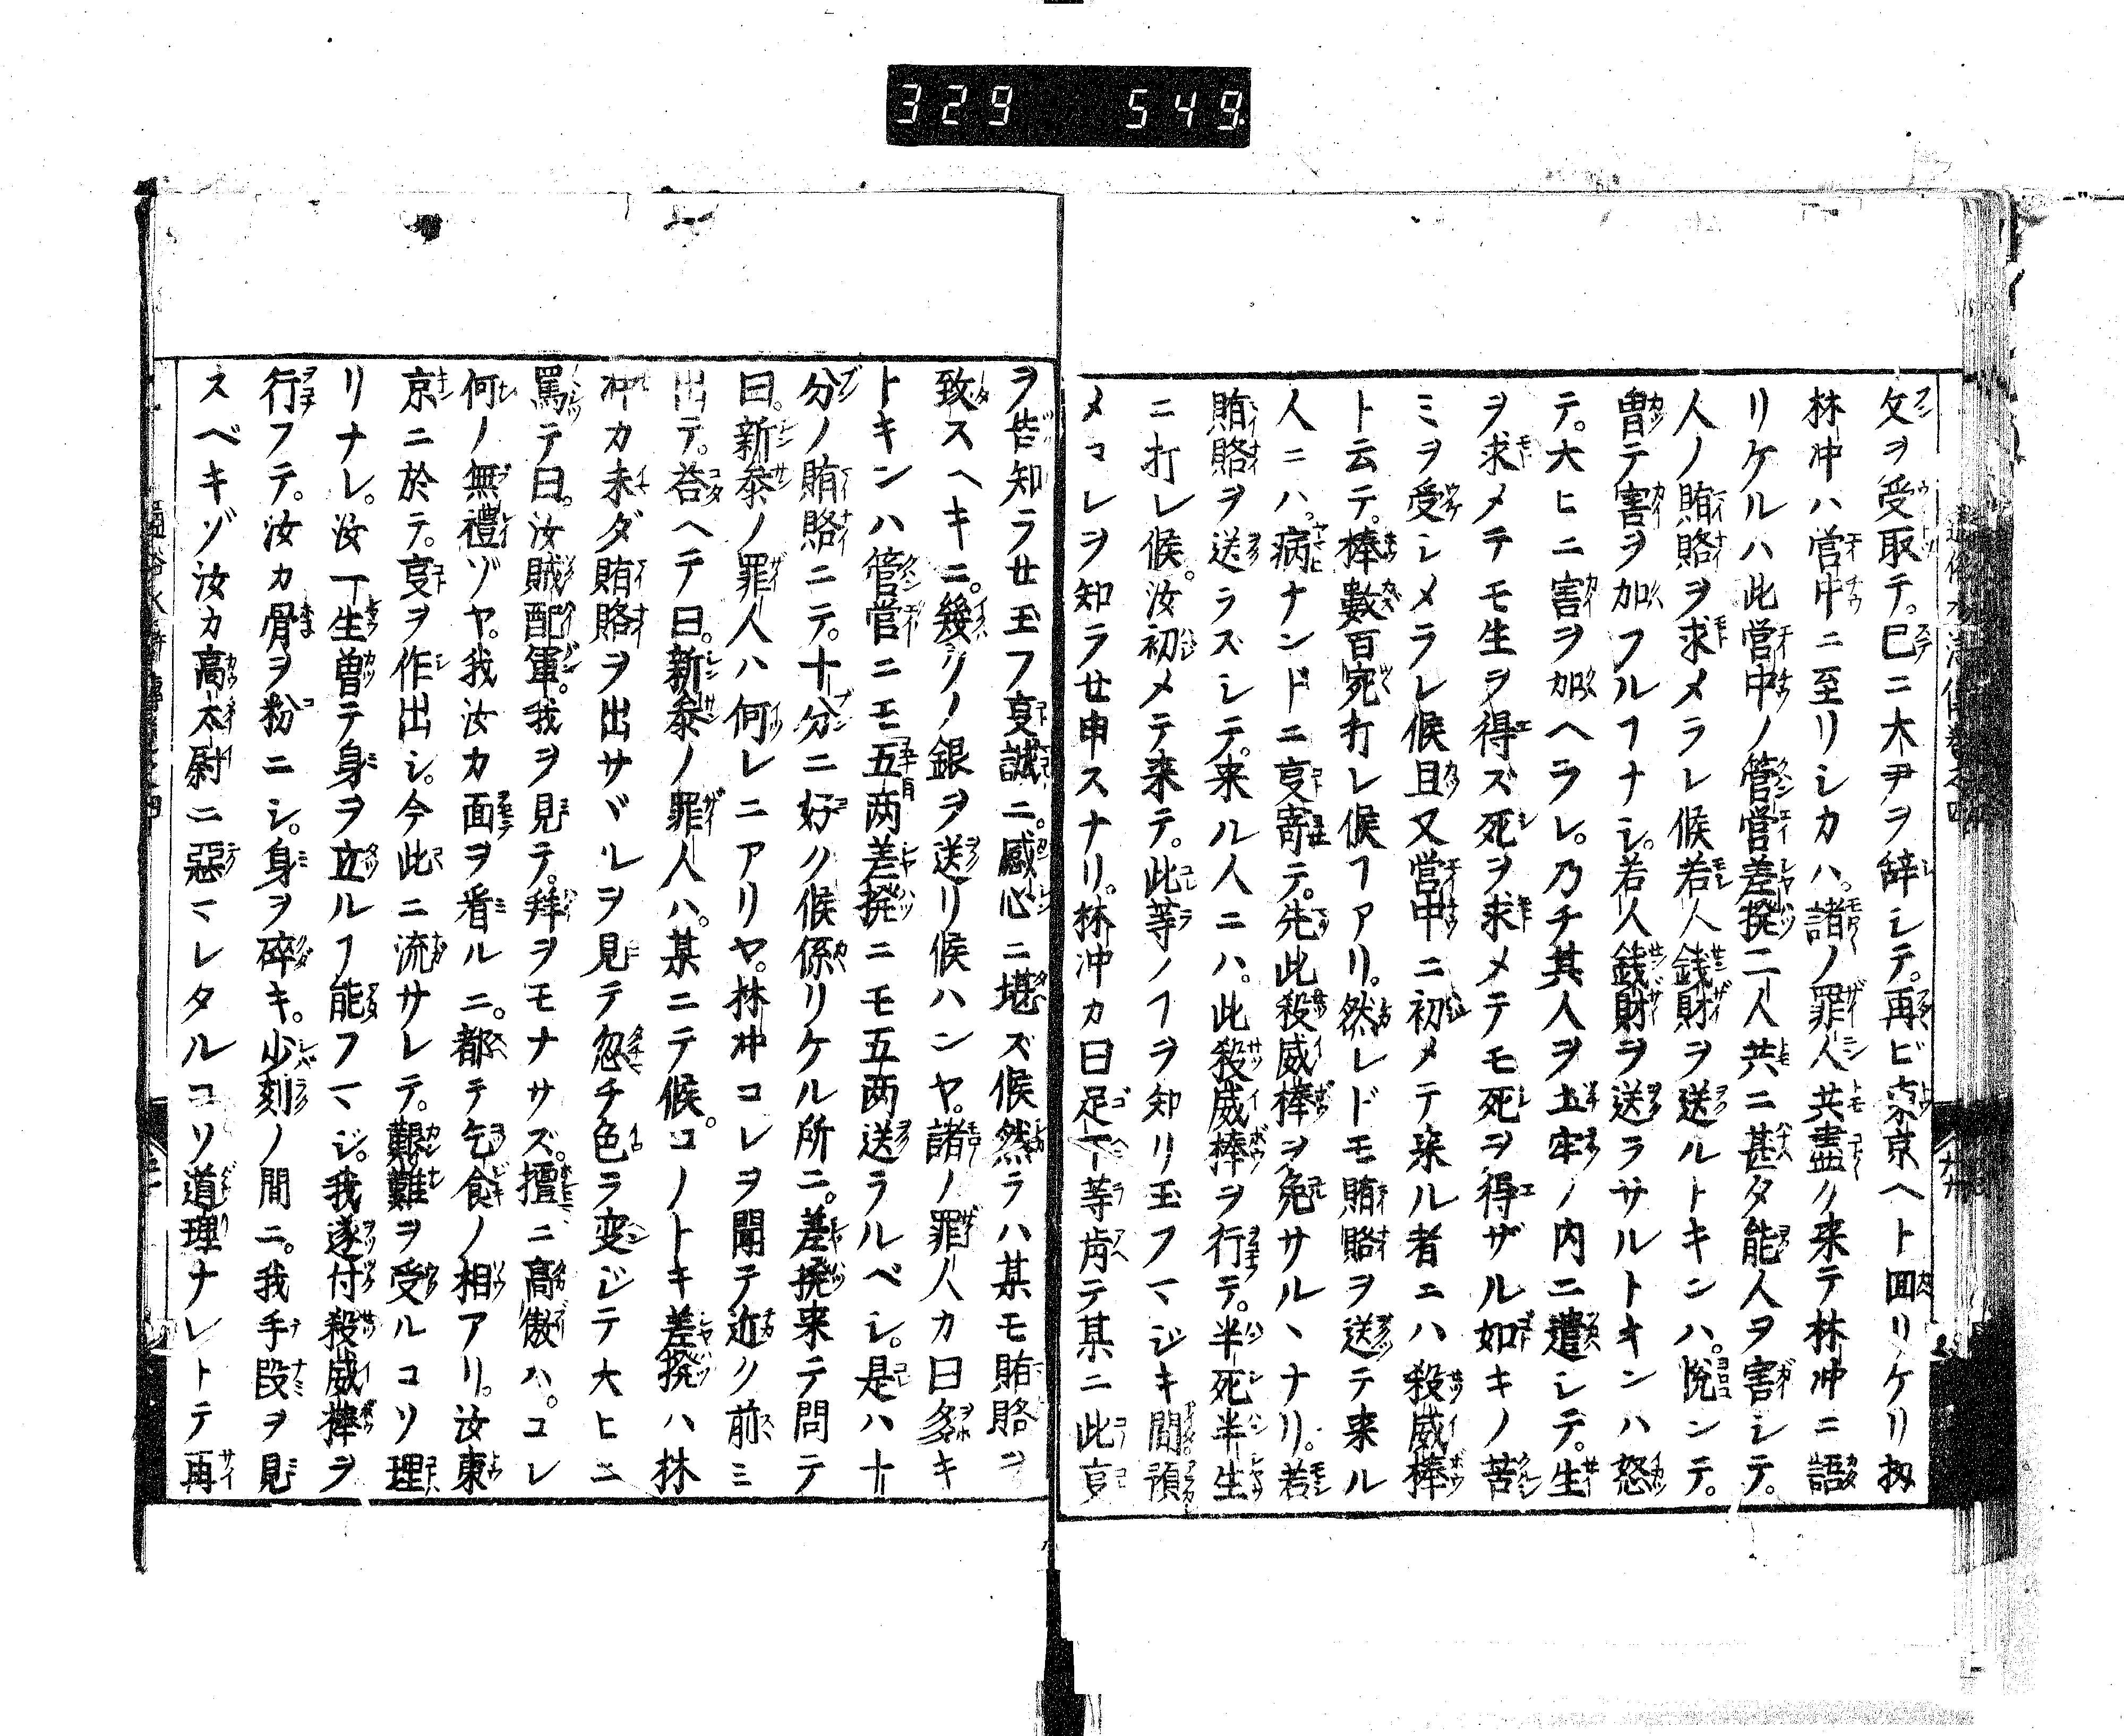 329 549
文ヲ受取テ。已ニ大尹ヲ辞シテ。再ビ東京ヘト回リケリ扨
林冲ハ営中ニ至リシカハ。諸ノ罪人共盡ク来テ林冲ニ語
リケルハ此営中ノ管営差撥二人共ニ甚タ能人ヲ害シテ。
人ノ賄賂ヲ求メラレ候若人銭財ヲ送ルトキンハ。悦ンテ。
曽テ害ヲ加フルヿナシ。若人銭財ヲ送ラサルトキンハ怒
テ。大ヒニ害ヲ加ヘラレ。乃チ其人ヲ土牢ノ内ニ遣シテ。生
ヲ求メテモ生ヲ得ズ死ヲ求メテモ死ヲ得ザル如キノ苦
ミヲ受シメラレ候且又営中ニ初メテ来ル者ニハ殺威棒
ト云テ。棒數百宛打レ候ヿアリ。然レドモ賄賂ヲ送テ来ル
人ニハ。病ナンドニ㕝寄テ。先此殺威棒ヲ免サルヽナリ。若
賄賂ヲ送ラズシテ。来ル人ニハ。此殺威棒ヲ行テ。半死半生
ニ打レ候。汝初メテ来テ。此等ノヿヲ知リ玉フマジキ間預
メコレヲ知ラせ申スナリ。林冲カ曰足下等肯テ某ニ此㕝
ヲ告知ラせ玉フ㕝誠ニ。感心ニ堪ズ候然ラハ某モ賄賂ヲ
致スヘキニ。幾リノ銀ヲ送リ候ハンヤ。諸ノ罪人カ曰多キ
トキンハ管営ニモ五両差撥ニモ五両送ラルベシ。是ハ十
分ノ賄賂ニテ。十分ニ好ク候係リケル所ニ。差撥来テ問テ
曰。新叅ノ罪人ハ何レニアリヤ。林冲コレヲ聞テ近ク前ミ
出テ。荅ヘテ曰。新叅ノ罪人ハ。某ニテ候。コノトキ差撥ハ林
冲カ未ダ賄賂ヲ出サヾルヲ見テ忽チ色ヲ変ジテ大ヒニ
罵テ曰。汝賊配軍。我ヲ見テ。拜ヲモナサズ。擅ニ高傲ハ。コレ
何ノ無禮ゾヤ。我汝カ面ヲ看ルニ。都テ乞食ノ相アリ。汝東
京ニ於テ。㕝ヲ作出シ。今此ニ流サレテ。艱難ヲ受ルコソ理
リナレ。汝一生曽テ身ヲ立ルヿ能フマジ。我遂付殺威棒ヲ
行フテ。汝カ骨ヲ粉ニシ。身ヲ碎キ。少刻ノ間ニ。我手段ヲ見
スベキゾ汝カ高太尉ニ惡マレタルコソ道理ナレトテ再